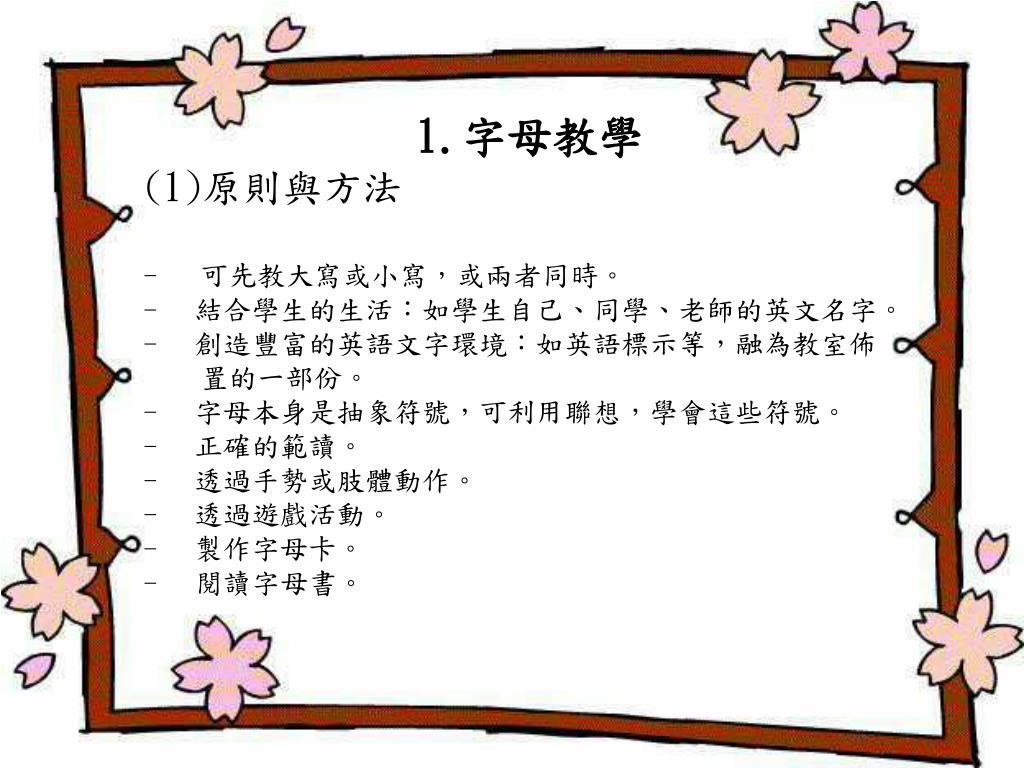 1.字母教學
(1)原則與方法
- 可先教大寫或小寫，或兩者同時。
- 結合學生的生活：如學生自己、同學、老師的英文名字。
- 創造豐富的英語文字環境：如英語標示等，融為教室佈
置的一部份。
- 字母本身是抽象符號，可利用聯想，學會這些符號。
- 正確的範讀。
- 透過手勢或肢體動作。
- 透過遊戲活動。
- 製作字母卡。
- 閱讀字母書。